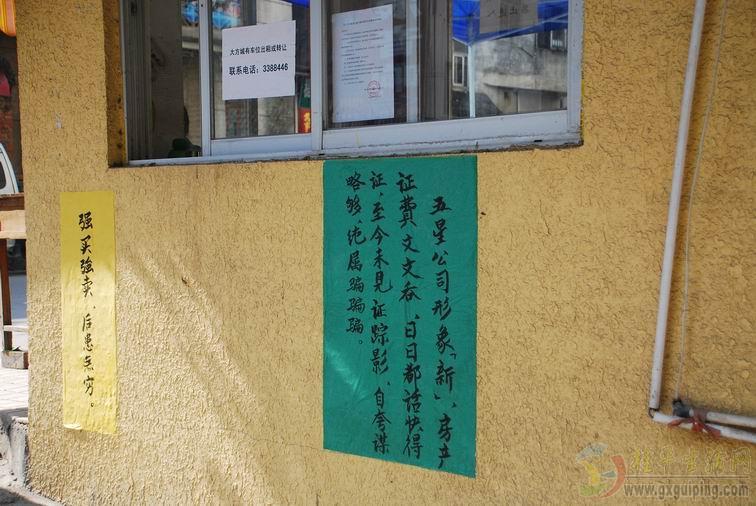 大方城有车位出租或转让
联系电话：3388446
五星公司形象“新”，房产
证费文文吞，日日都话快得
证，至今未见证踪影，自夸谋
略够，绝属骗骗骗。
强买强卖，后患无穷。
www.gxguiping.com